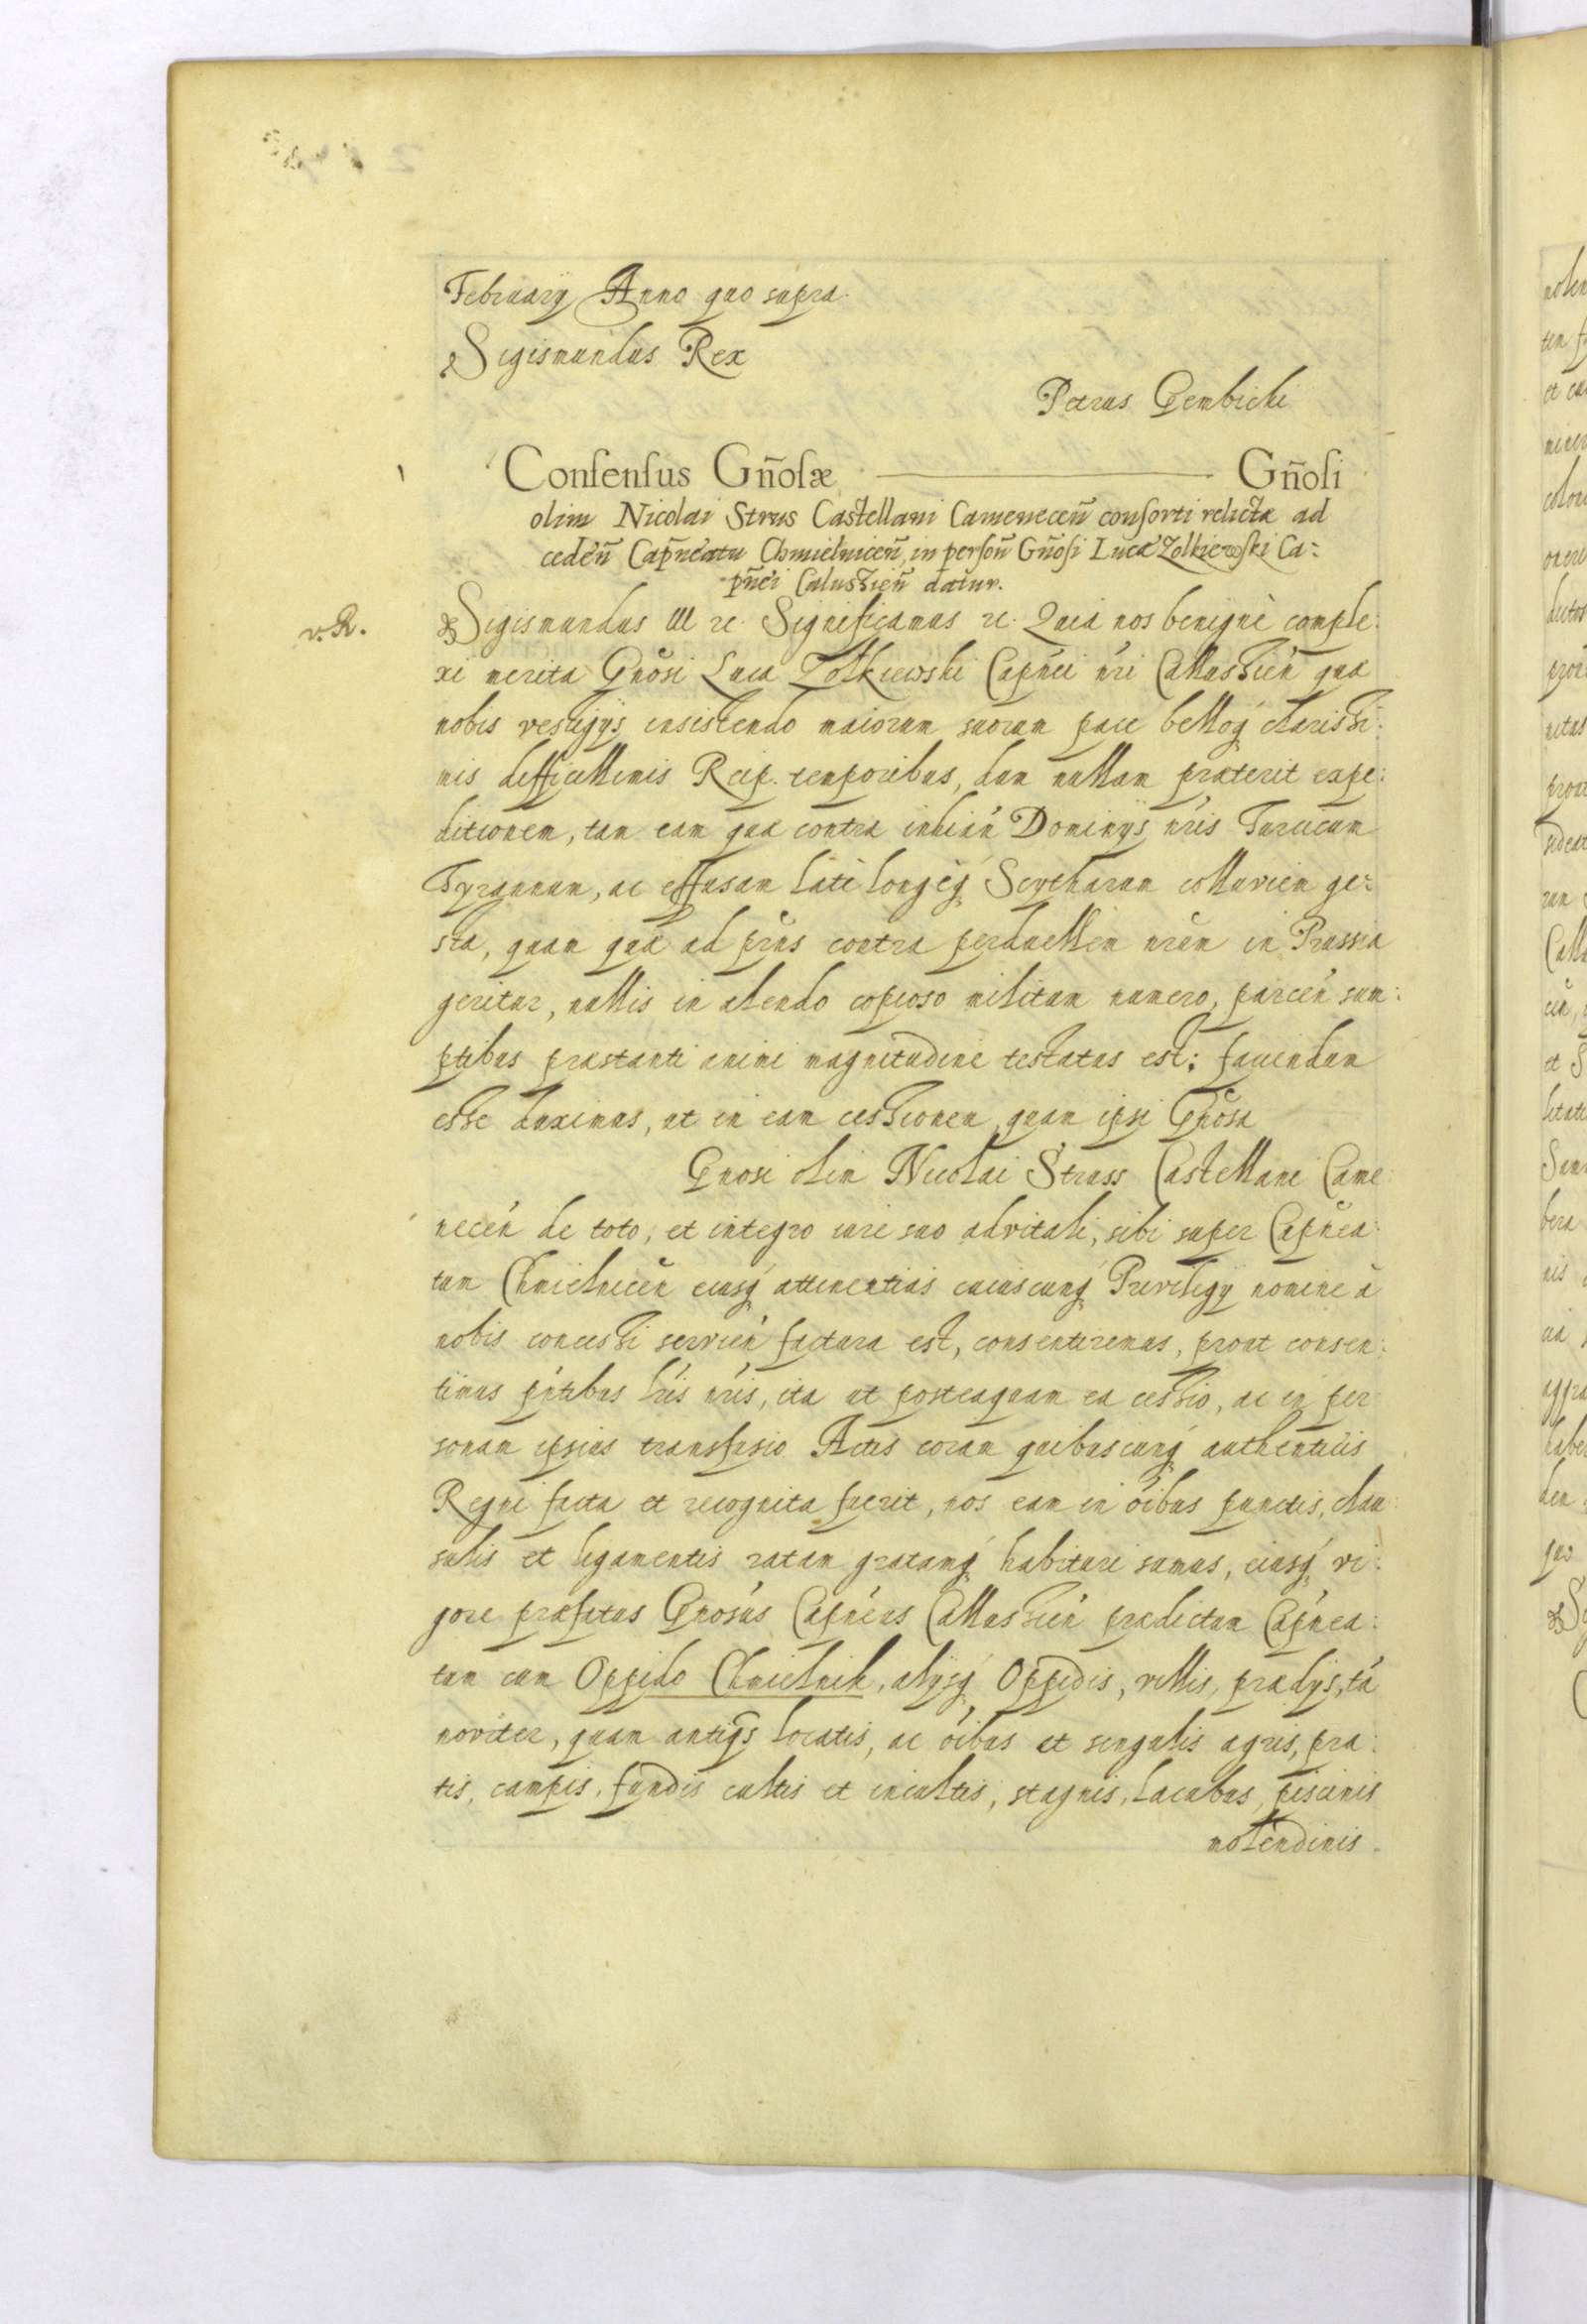 Februarij Anno quo supra.
Sigismundus Rex
Petrus Gembicki
Consensus Gn̄osæ ——— Gn̄osi
olim Nicolai Strus Castellani Camenecen̄ consorti relictæ ad
ceden̄ Cap̄neatu Chmielnicen̄, in person̄ Gn̄osi Lucæ Zolkiewski Ca:
pn̄ei Calussien̄ datur.
v. R. Sigismundus III ꝛc. Significamus ꝛc. Quia nos benignè comple:
xi merita Gn̄osi Lucæ Zolkiewski Capn̄ei nr̄i Callussien̄ quæ
nobis vestigijs insistendo maiorum suorum pace belloq́ꝫ clarissi:
mis difficillimis Reip. temporibus, dum nullam præterit expe:
ditionem, tam eam quæ contra inhian̄ Dominijs nr̄is Turcicum
Tyrannum, ac effusam latè longeq́ꝫ Scytharum colluviem ge:
sta, quam quæ ad pr̄ns contra perduellem nr̄um in Prussia
geritur, nullis in alendo copioso militum numero, parcen̄ sum:
ptibus præstanti animi magnitudine testatus est: fauendum
esse duximus, ut in eam cessionem quam ipsi Gn̄osa
Gnosi olim Nicolai Struss Castellani Came:
necen̄ de toto, et integro iure suo aduitali, sibi super Capn̄ea:
tum Chmielnicen̄ eiusq́ꝫ attinentias cuiuscunq́ꝫ Priuilegij nomine à
nobis concessi servien̄ factura est, consentiremus, prout consen:
timus pn̄tibus lr̄is nr̄is, ita ut posteaquam ea cessio, ac in per
sonam ipsius transfusio Actis coram quibuscunq́ꝫ authenticis
Regni facta et recognita fuerit, nos eam in o̅ibus punctis, clau:
sulis et ligamentis ratam gratamq́ꝫ habituri sumus, eiusq́ꝫ vi:
gore præfatus Gn̄osus Capn̄eus Callussien̄ prædictum Capn̄ea:
tum cum Oppido Chmielnik, alijsq́ꝫ Oppidis, villis, prædijs, tā
noviter, quam antiqs̄ locatis, ac o̅ibus et singulis agris, pra:
tis, campis, fundis cultis et incultis, stagnis, lacubus, piscinis
molendinis